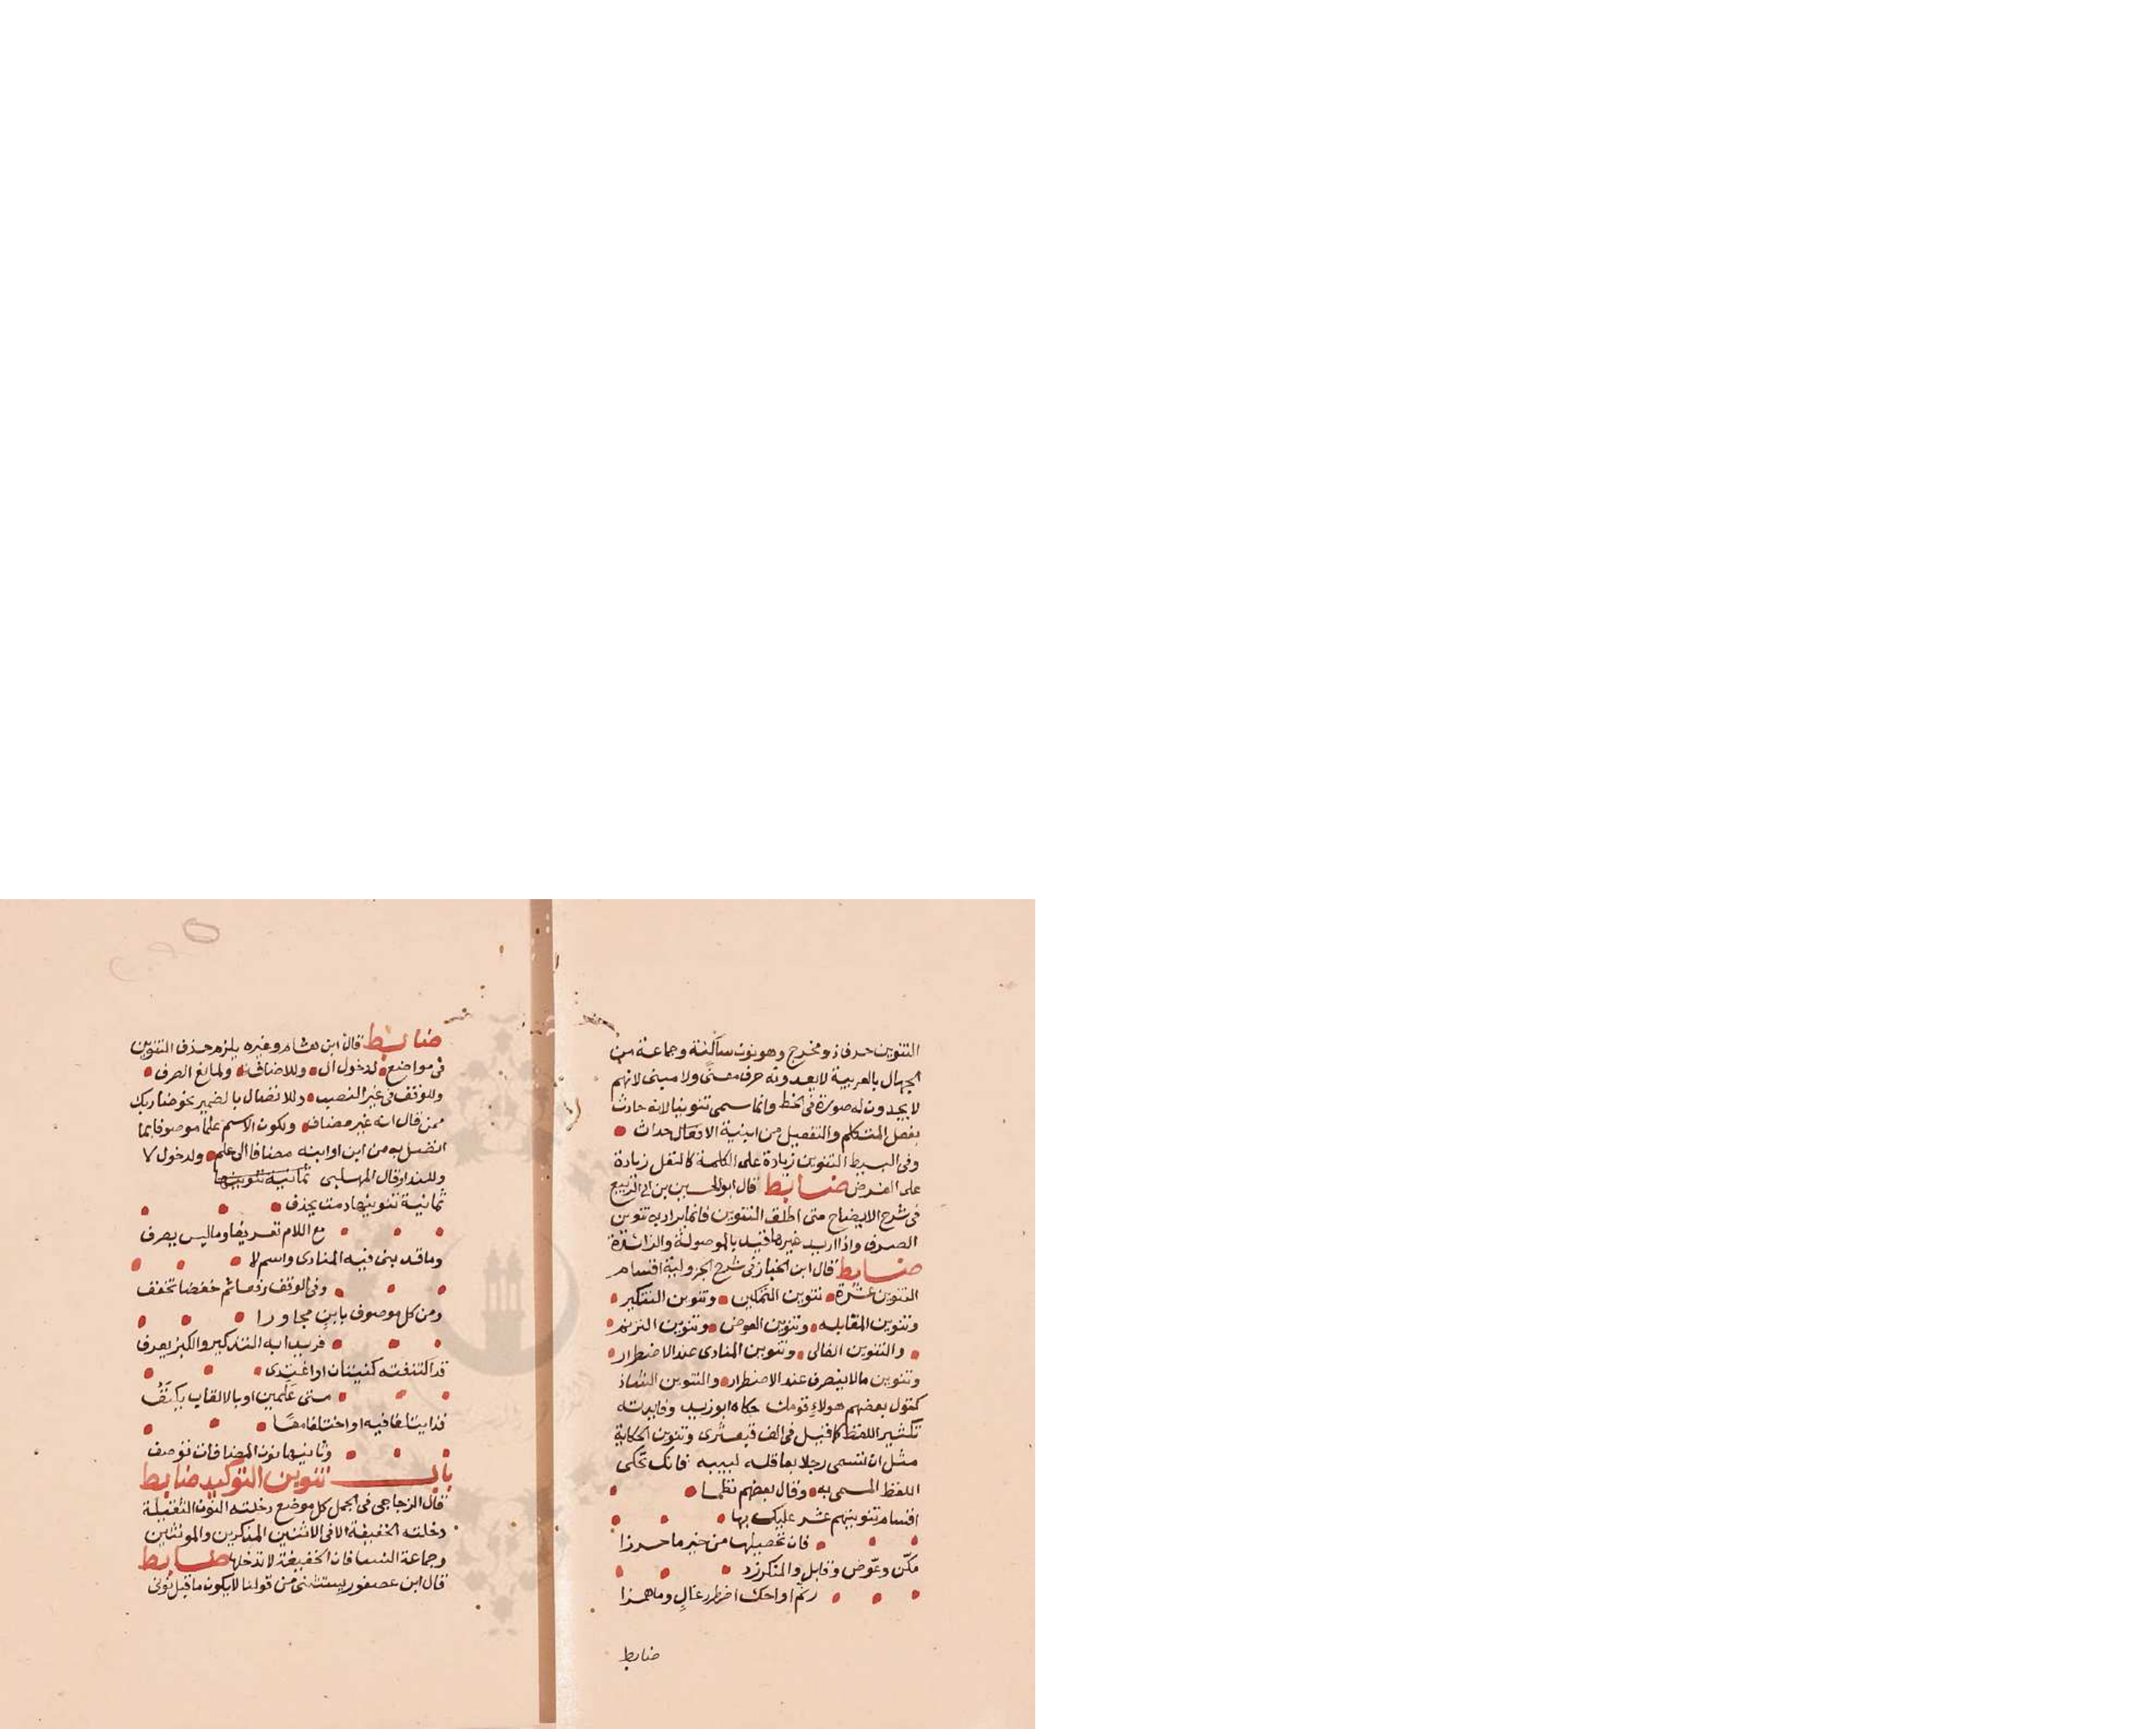 التنوين حرف ذو مخرج وهو نون ساكنة وجماعة من
الجهال بالعربية لا يعدونه حرف معنى ولا مبنى لانهم
لا يجدون له صورة في الخط وانما سمى تنوينا لانه حادث
بفعل المتكلم والتفعيل من ابنية الاحداث
وفي البسيط التنوين زيادة على الكلمة كالنفل زيادة
على الفرض ضابط قال ابو الحسين بن ابي الربيع
في شرح الايضاح متى اطلق التنوين فانما يراد به تنوين
الصرف واذا اريد غيرها قيد بالموصولة والزائدة
ضابط قال ابن الخباز في شرح الجزولية اقسام
التنوين عشرة تنوين التمكين وتنوين التنكير
وتنوين المقابلة وتنوين العوض وتنوين الترنم
والتنوين الغالى وتنوين المنادى عند الاضطرار
وتنوين مالا ينصرف عند الاضطرار والتنوين الشاذ
كقول بعضهم هولاء قومك حكاه ابو زيد وفايدته
تكثير اللفظ كما قيل في الف قبعثرى وتنوين الحكاية
مثل ان تسمى رجلا بعاقله لبيبه فانك تحكى
اللفظ المسمى به وقال بعضهم نظما
اقسام تنوينهم عشر عليك بها
فان تحصيلها من خير ما حرزا
مكّن وعوّض وقابل والمنكر زد
رنّم او احك اضطرر غالٍ وما همزا
ضابط
ضابط قال ابن هشام وغيره يلزم حذف التنوين
في مواضع لدخول ال وللاضافة ولمانع الصرف
وللوقف في غير النصب وللاتصال بالضمير نحو ضاربك
ممن قال انه غير مضاف ولكون الاسم علما موصوفا بما
اتصل به من ابن او ابنه مضافا الى علم ولدخول لا
وللنداء وقال المهلبى ثمانية تنوينها
ثمانية تنوينها دمت يحذف
مع اللام تعريفا وما ليس يصرف
وما قد بنى فيه المنادى واسم لا
وفي الوقف رفعا ثم خفضا تخفف
ومن كل موصوف بابنٍ مجاورا
فريدا به التذكير والكبر يعرف
قد اكتنفته كنيتان او اغتدى
متى علمين او بالالقاب يكنف
فذا يتلفا فيه او اختلفا معًا
وثانيها نون المضافات توصف
باب تنوين التوكيد ضابط
قال الزجاجى في الجمل كل موضع دخلته النون الثقيلة
دخلته الخفيفة الا في الاثنين المذكرين والمونثين
وجماعة النسا فان الخفيفة لا تدخلها ضابط
قال ابن عصفور يستثنى من قولنا لا يكون ما قبل نونى